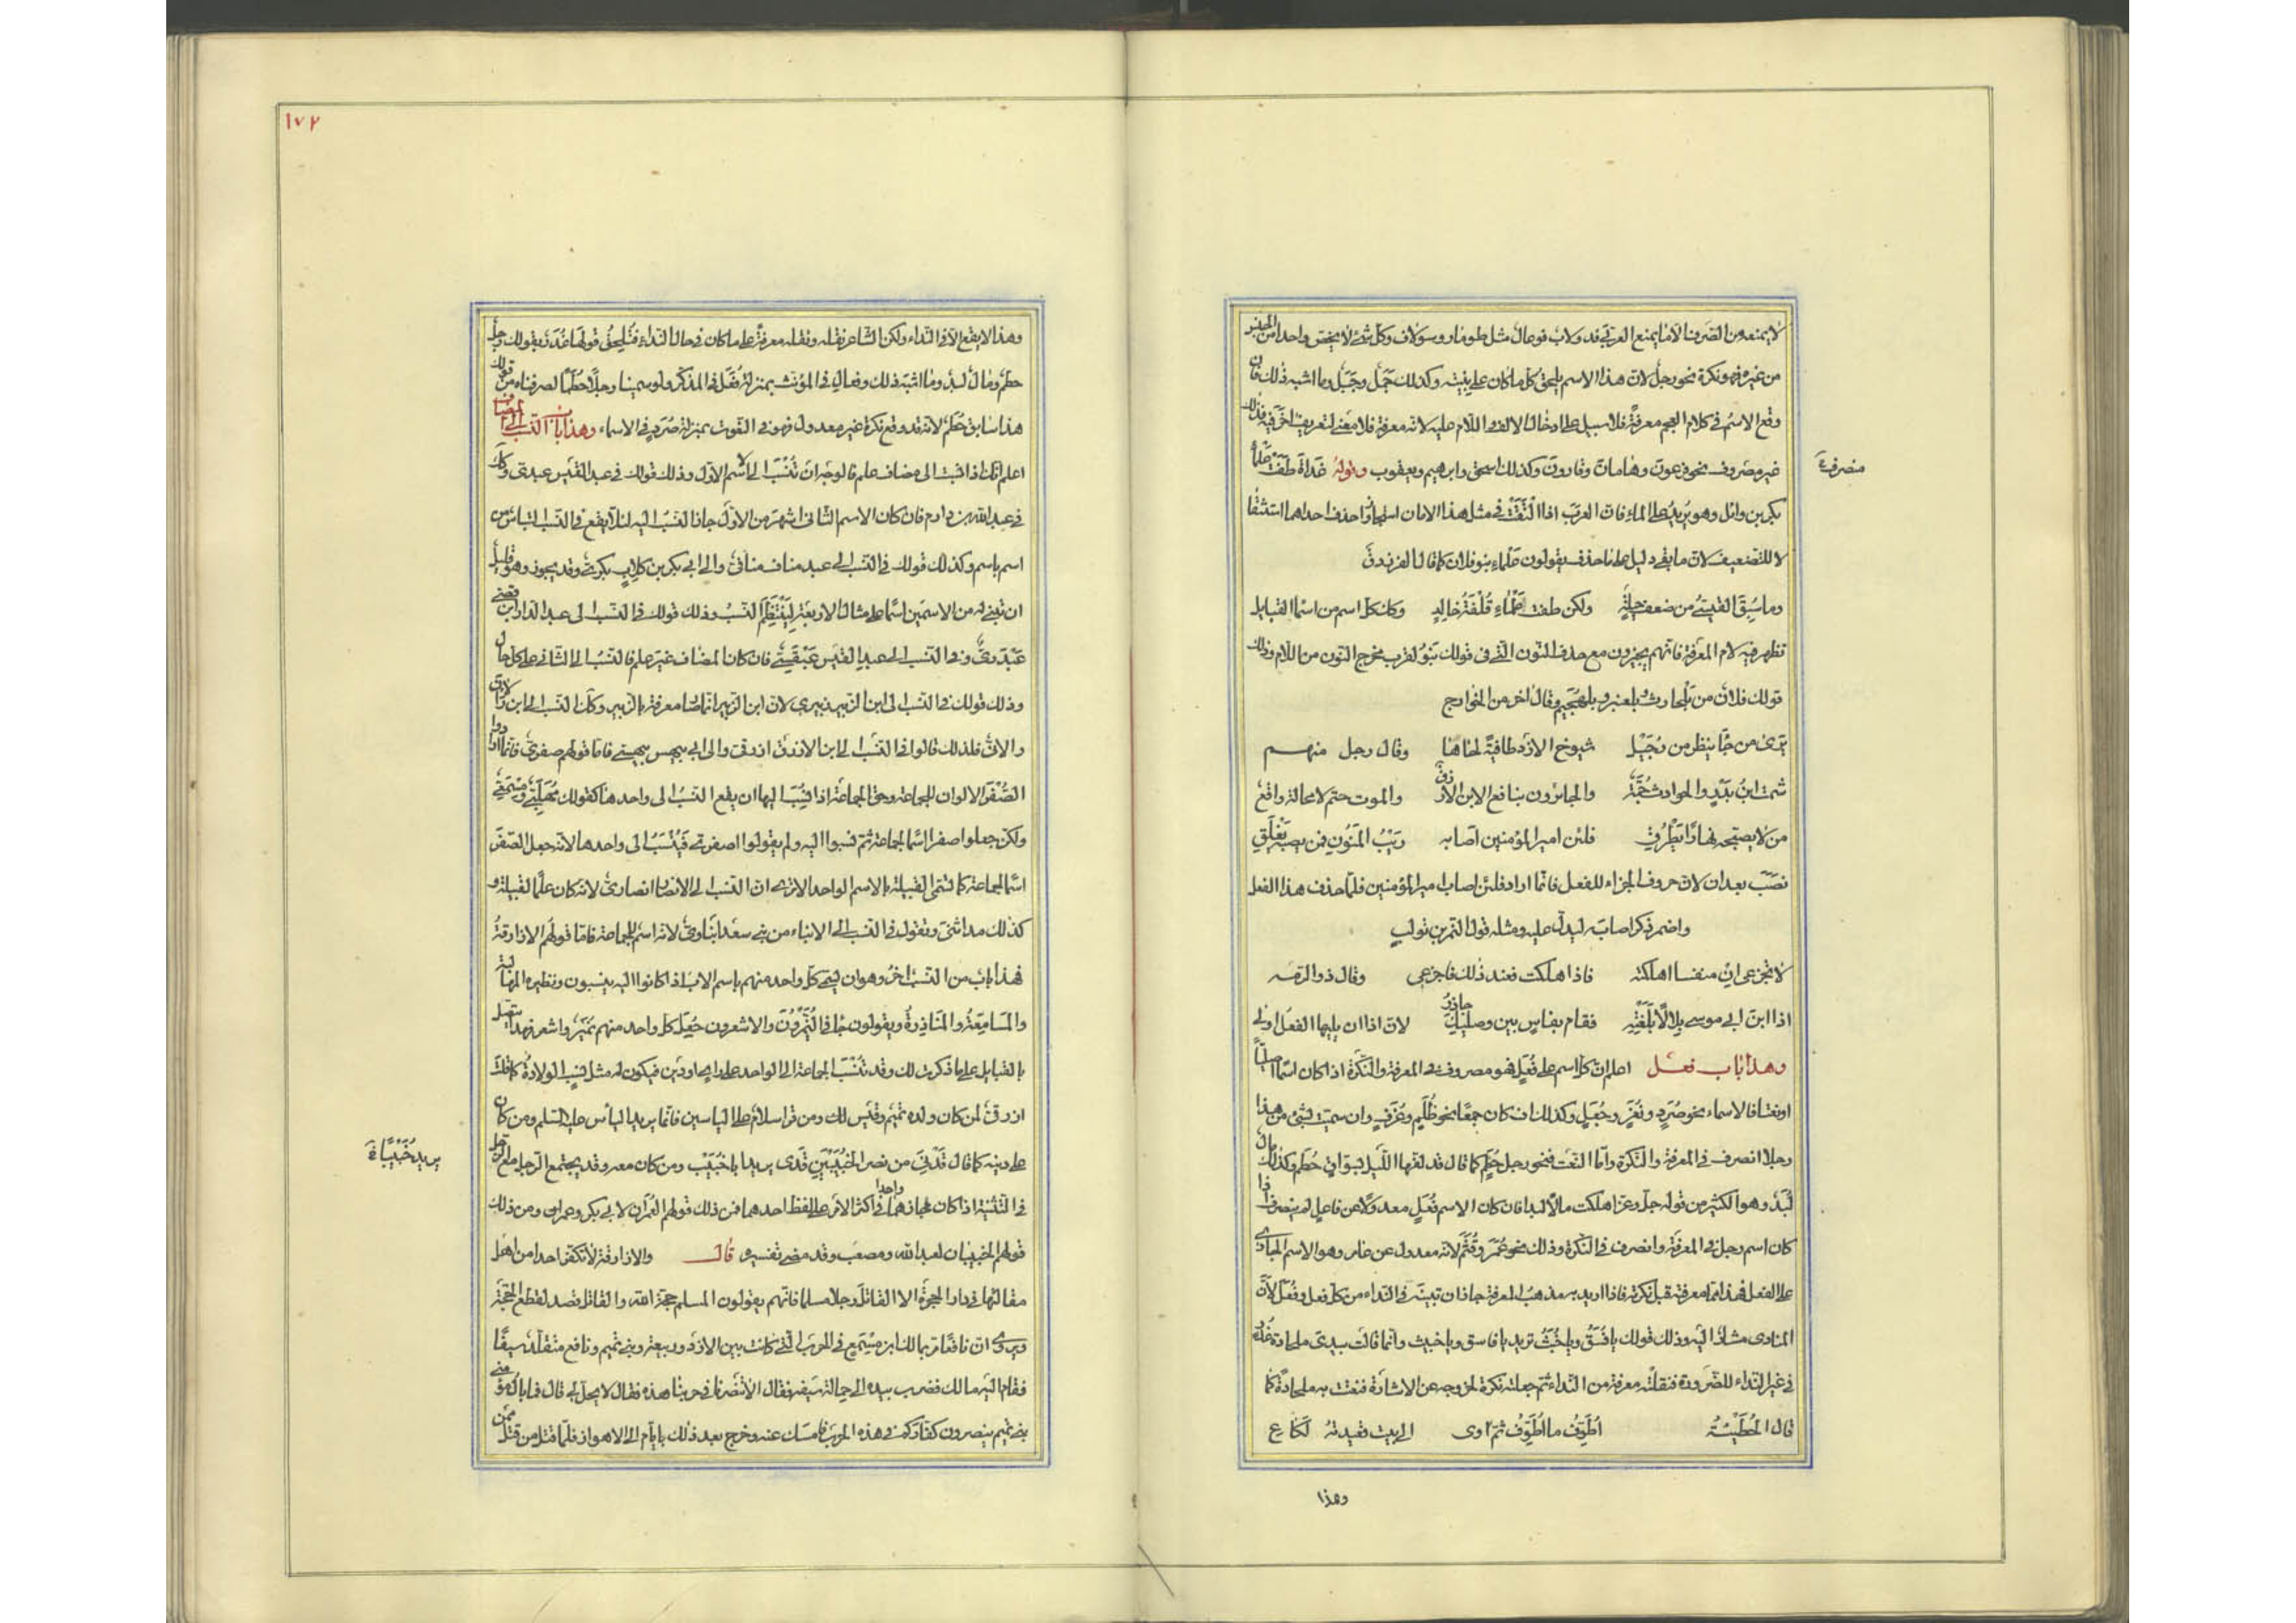 لا يمنعه من الصرف الا ما يمنع العربي فدولاب فوعال مثل طومار وسولاف وكل شئ لا يخص واحدا من الجنس
من غيره فهو نكرة نحو رجل لان هذا الاسم يلحق كل ما كان على بنيته وكذلك جمل وجبل وما اشبه ذلك فان
وقع الاسم فى كلام العجم معرفة فلا سبيل على ادخال الالف واللام عليه لانه معرفة فلا معنى لتعريف اخر فيه فذلك
منصرفة
غير مصروف نحو فرعون وهامان وقارون وكذلك اسحق وابرهيم ويعقوب وقوله غداة طفت علماء
بكر بن وائل وهو يريد على الماء فان العرب اذا التقت فى مثل هذا لامان استجازوا حذف احداهما استثقالا
لا للتضعيف لان ما بقى دليل على ما حذف يقولون علماء بنو فلان كما قال الفرزدق
وما سبق القيسى من ضعف حيلة ولكن طفت علماء قلفة خالد وكذلك كل اسم من اسماء القبايل
تظهر فيه لام المعرفة فانهم يجيزون معه حذف النون التى فى قولك بنو لقرب مخرج النون من اللام وذلك
قولك فلان من بلحارث وبلعنبر وبلهجيم وقال اخر من الخوارج
يرى من جا ينظر من دجيل شيوخ الازد طافية لحاها وقال رجل منهم
شمت ابن بدر والحوادث جمة والجائرون بنافع الابن الازرق والموت حتم لا محالة واقع
من لا يصبحه نهارا يطرق فلئن امير المؤمنين اصابه ريب المنون فمن يصبه يغلق
نصب بعد ان لان حروف الجزاء للفعل فانما اراد فلئن اصاب امير المؤمنين فلما حذف هذا الفعل
واضمر ذكر اصابه ليدل عليه ومثله قول النمر بن تولب
لا تجزعى ان منفسا اهلكته فاذا هلكت فعند ذلك فاجزعى وقال ذو الرمه
اذا ابن ابى موسى بلالا بلغته فقام بفاس بين وصليك جازر لان اذا ان يليها الفعل اولى
وهذا باب فعل اعلم ان كل اسم على فعل فهو مصروف فى المعرفة والنكرة اذا كان اسما اصليا
او نعتا فالاسماء نحو صرد ونغر وجعل وكذلك ان كان جمعا نحو ظلم وغرف وان سميت بشئ من هذا
رجلا انصرف فى المعرفة والنكرة واما النعت فنحو رجل حطم كما قال قد لفها الليل بسواق حطم وكذلك مال
لبد وهو الكثير من قوله جل وعز اهلكت مالا لبدا فان كان الاسم فعل معدولا عن فاعل لم ينصرف اذا
كان اسم رجل فى المعرفة وانصرف فى النكرة وذلك نحو عمر وقثم لانه معدول عن عامر وهو الاسم الجارى
على الفعل فهذا مما معرفته قبل نكرته فاذا اريد به مذهب المعرفة جاز ان تبنيه فى النداء من كل فعل وفعل لان
المنادى مشار اليه وذلك قولك يا فسق ويا خبث تريد يا فاسق ويا خبيث وانما قالت بيدى ملحادة غدر
فى غير النداء للضرورة فنقلته معرفة من النداء ثم جعلته نكرة لخروجه عن الاشارة فنعت به ملحادة كما
قال الحطيئة اطوف ما اطوف ثم اوى الى بيت قعيدته لكاع
وهذا
١٧٢
وهذا لا يقع الا فى النداء ولكن الشاعر نقله ونقله معرفة على ما كان فى حال النداء فتلحق قولها غدر بقولك رجل
حطم ومال لبد وما اشبه ذلك وفعال فى المؤنث بمنزلة فعل فى المذكر ولو سمينا رجلا حطما لصرفناه من قولك
هذا سابق حطم لانه قد وقع نكرة غير معدول فهو فى النعوت بمنزلة صرد فى الاسماء وهذا باب النسب الى المضاف
اعلم انك اذا نسبت الى مضاف علم فالوجه ان تنسب الى الاسم الاول وذلك قولك فى عبد القيس عبدى وكذلك
فى عبد الله بن دارم فان كان الاسم الثانى اشهر من الاول جاز النسب اليه لئلا يقع فى النسب التباس من
اسم باسم وكذلك قولك فى النسب الى عبد مناف منافى والى ابى بكر بن كلاب بكرى وقد يجوز وهو قليل
ان تبنى له من الاسمين اسما على مثال الاربعة لينتظم النسب وذلك قولك فى النسب الى عبد الدار ابن قصى
عبدرى وفى النسب الى عبد القيس عبقسى فان كان المضاف غير علم فالنسب الى الثانى على كل حال
وذلك قولك فى النسب الى ابن الزبير زبيرى لان ابن الزبير انما صار معرفة بالزبير وكذلك النسب الى ابن رالان
رالانى فلذلك قالوا فى النسب الى ابن الازرق ازرقى والى ابى بيهس بيهسى فاما قولهم صفرى فانما ارادوا
الصفر الالوان للجماعة وحق الجماعة اذا نسب اليها ان يقع النسب الى واحدها كقولك مهلبى ومسمعى
ولكن جعلوا صفرا اسما لجماعة ثم نسبوا اليه ولم يقولوا اصفرى فينسب الى واحدها لانه جعل الصفر
اسما لجماعة كما تسمى القبيلة بالاسم الواحد الا ترى ان النسب الى الانصار انصارى لانه كان علما لقبيلة و
كذلك مداينى وتقول فى النسب الى الابناء من بنى سعد ابناوى لانه اسم للجماعة فاما قولهم الازارقة
فهذا باب من النسب اخر وهو ان يسمى كل واحد منهم باسم الاب اذا كانوا اليه ينسبون ونظيره المهالبة
والمسامعة والمناذرة ويقولون جا فى النميرون والاشعرون جعل كل واحد منهم نمير واشعر فهذا يتصل
بالقبايل على ما ذكرت لك وقد تنسب الجماعة الى الواحد على راى او دين فيكون له مثل نسب الولادة كما قلت
ازرقى لمن كان ولده تميم وقيس لك ومن قرا سلام على الياسين فانما يريد الياس عليه السلم ومن كان
يريد خبيبا
على دينه كما قال قدنى من نصر الخبيبين قدى يريد ابا خبيب ومن كان معه وقد يجتمع الرجل مع الرجل
فى التثنية اذا كان مجازهما واحدا فى اكثر الامر على لفظ احدهما فمن ذلك قولهم العمران لابى بكر وعمر ومن ذلك
قولهم الخبيبان لعبد الله ومصعب وقد مضى تفسيره قال والازارقة لا تكفر احدا من اهل
مقالتها فى دار الهجرة الا القاتل رجلا مسلما فانهم يقولون المسلم حجة الله والقاتل قصد لقطع الحجة
ويروى ان نافعا مر بمالك ابن مسمع فى الحرب التى كانت بين الازد وربيعة وبنى تميم ونافع متقلد سيفا
فقام اليه مالك فضرب بيده الى حمالة سيفه فقال الا تنصرنا فى حربنا هذه فقال لا يحل لى قال فما بال مؤمنى
بنى تميم ينصرون كفاركم فى هذه الحرب فامسك عنه وخرج بعد ذلك بايام الى الاهواز فلما قتل من قتل ممن